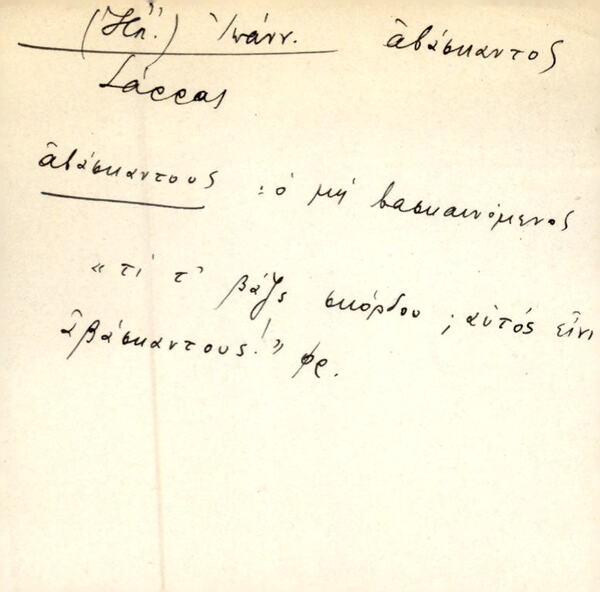 (Ἤπ.) Ἰωάνν. ἀβάσκαντος
Σάρρας
ἀβάσκαντους : ὁ μή βασκαινόμενος
"τί τ' βάζς σκόρδου ; αὐτός εἶνι
ἀβάσκαντους!" φρ.